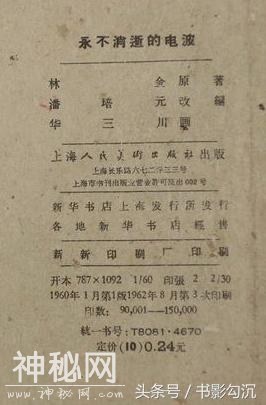 永不消逝的电波
林 金 原 著
潘 培 元 改 編
华 三 川 画
上海人民美術出版社出版
上海长乐路六七二弄三三号
上海市书刊出版业营业許可証出002号
新华书店上海发行所发行
各地新华书店經售
新新印刷厂印刷
开本 787×1092 1/60 印張 2 2/30
1960年1月第1版 1962年8月第3次印刷
印数: 90,001—150,000
統一书号: T8081·4670
定价 (10) 0.24元
神秘网
WWW.
头条号 / 书影勾沉